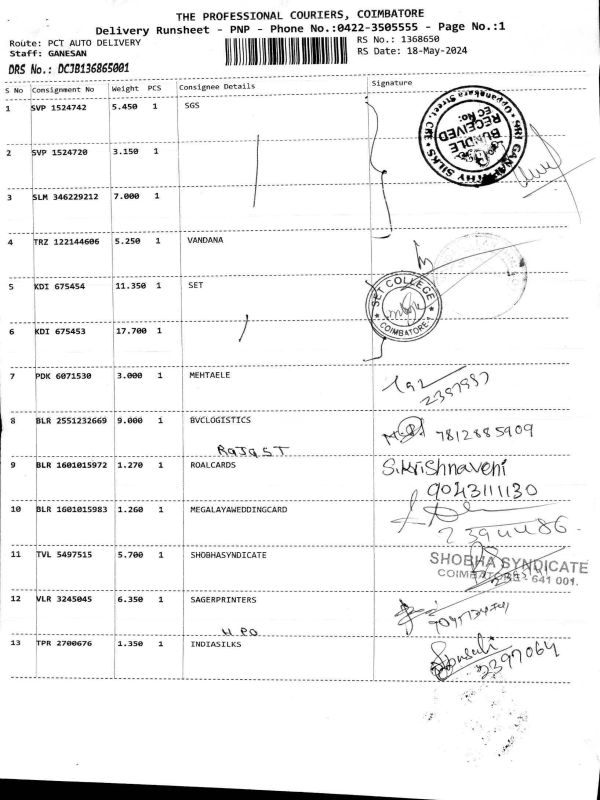 THE PROFESSIONAL COURIERS, COIMBATORE
Delivery Runsheet - PNP - Phone No.:0422-3505555 - Page No.:1
Route: PCT AUTO DELIVERY
RS No.: 1368650
Staff: GANESAN
RS Date: 18-May-2024
DRS No.: DCJB136865001
S No Consignment No Weight PCS Consignee Details Signature
1 SVP 1524742 5.450 1 SGS
SRI GANAPATHY SILKS
Oppanakara Street, CBE
BUNDLE RECEIVED
EC No:
2 SVP 1524720 3.150 1
3 SLM 346229212 7.000 1
4 TRZ 122144606 5.250 1 VANDANA
5 KDI 675454 11.350 1 SET
SET COLLEGE
COIMBATORE-1
6 KDI 675453 17.700 1
7 PDK 6071530 3.000 1 MEHTAELE
2397987
8 BLR 2551232669 9.000 1 BVCLOGISTICS
7812885909
RajaST
9 BLR 1601015972 1.270 1 ROALCARDS S.Krishnaveni
9043111130
10 BLR 1601015983 1.260 1 MEGALAYAWEDDINGCARD
2394486
11 TVL 5497515 5.700 1 SHOBHASYNDICATE SHOBHA SYNDICATE
COIMBATORE - 641 001.
12 VLR 3245045 6.350 1 SAGERPRINTERS
H.PO
13 TPR 2700676 1.350 1 INDIASILKS
2397064